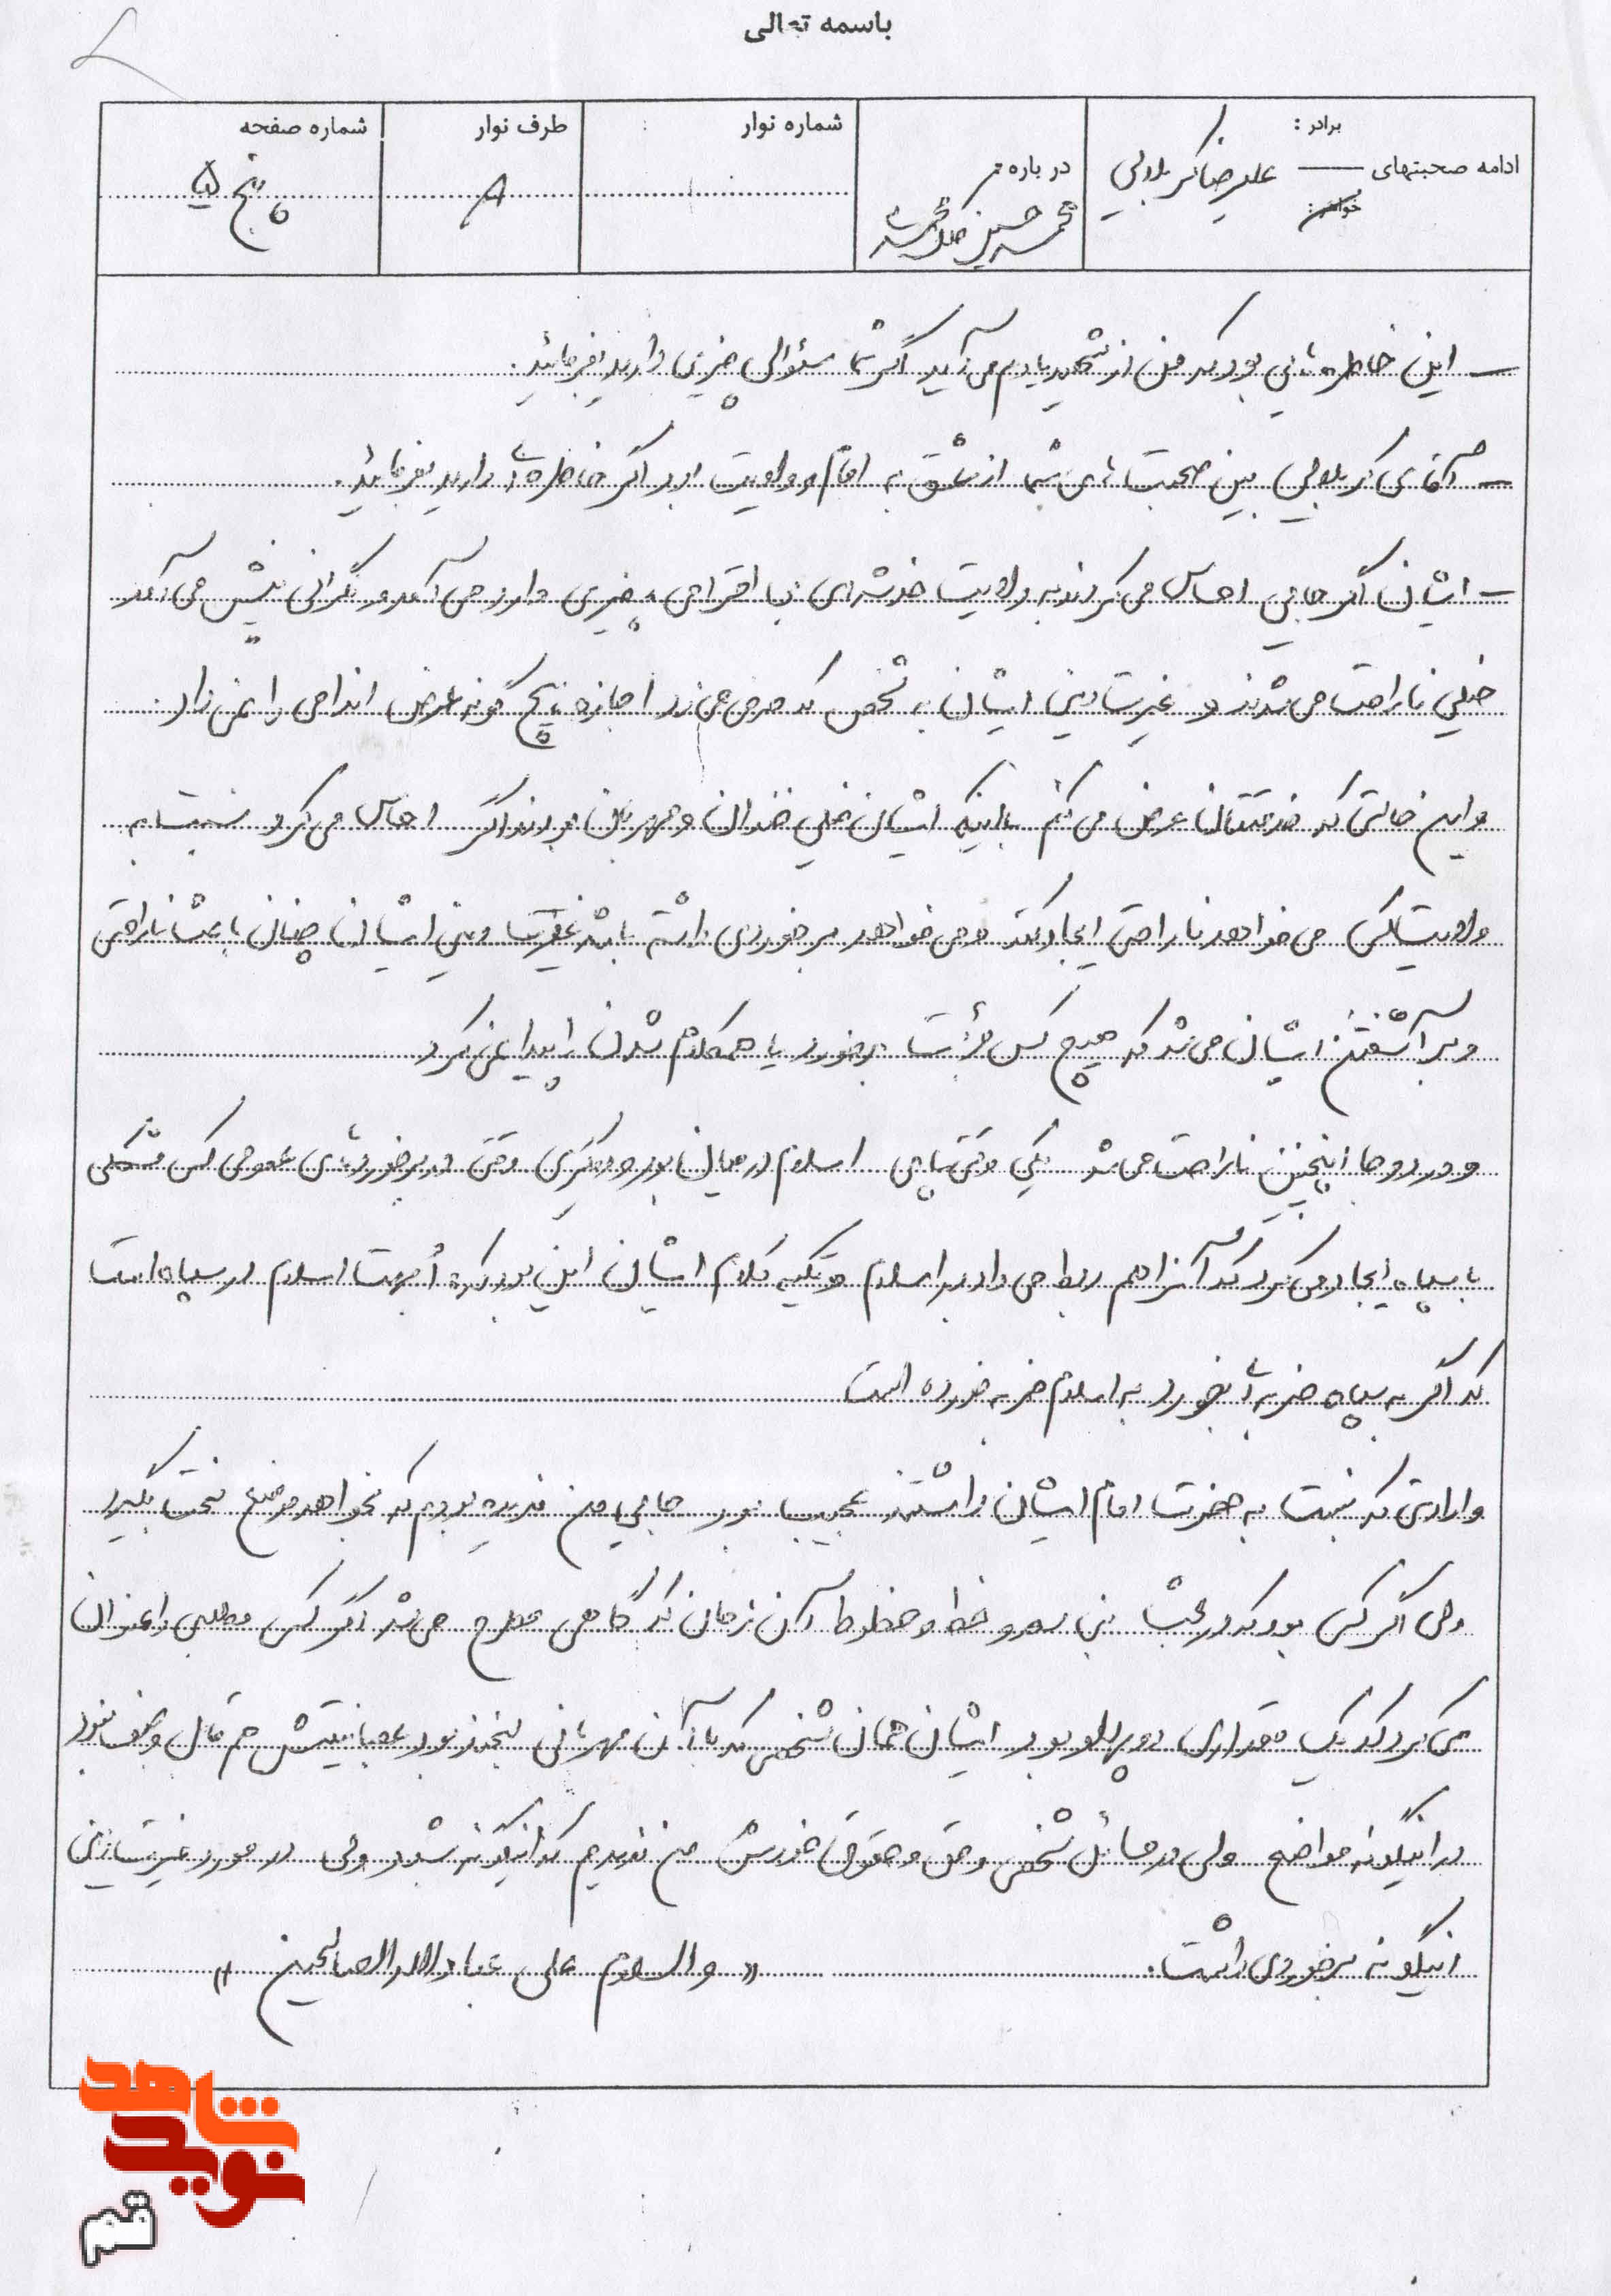 باسمه تعالی
برادر :
ادامه صحبتهای علیرضا کربلایی
خواهر :
در باره
محمد حسین
شماره نوار
طرف نوار
شماره صفحه
پنج ۵
– این خاطره‌هایی بود که من از شهید یادم می‌آید اگر شما سئوالی چیزی دارید بفرمائید.
– آقای کربلایی بین صحبت‌های شما از عشق به امام و ولایت بود اگر خاطره‌ای دارید بفرمائید.
– ایشان اگر جایی احساس می‌کردند به ولایت خدشه‌ای یا اعتراضی چیزی وارد می‌آمد و نگرانی پیش می‌آمد
خیلی ناراحت می‌شدند و غیرت دینی ایشان به شخص که حرف می‌زد اجازه هیچ گونه عرض اندامی را نمی‌داد.
و این حالتی که خدمتتان عرض می‌کنم با اینکه ایشان خیلی خندان و مهربان بودند اگر احساس می‌کرد نسبت به
ولایت کسی می‌خواهد ناراحتی ایجاد کند و می‌خواهد برخوردی داشته باشد غیرت دینی ایشان چنان باعث ناراحتی
و برآشفتن ایشان می‌شد که هیچ کس جرئت برخورد یا همکلام شدن را پیدا نمی‌کرد
و در دو جا اینچنین ناراحت می‌شد یکی وقتی پای اسلام در میان بود و دیگری وقتی در برخوردهای عمومی کسی مشکلی
با سپاه ایجاد می‌کرد که آنرا هم ربط می‌داد به اسلام و تکیه کلام ایشان این بود که ابهت اسلام در سپاه است
که اگر به سپاه ضربه‌ای بخورد به اسلام ضربه خورده است
و ارادتی که نسبت به حضرت امام ایشان داشتند عجیب بود جایی من ندیده بودم که بخواهد موضع سخت بگیرد
ولی اگر کسی بود که در بحث بنی صدر و خط و خطوط آن زمان که گاهی مطرح می‌شد اگر کسی مطلبی را عنوان
می‌کرد که یک مقداری دو پهلو بود ایشان همان شخصی که با آن مهربانی لبخند بود عصبانیتش هم قابل وصف نبود
در اینگونه مواضع ولی در مسائل شخصی و حق و حقوق خودش من ندیدم که اینگونه بشود ولی در مورد غیرت دینی
اینگونه برخوردی داشت. « والسلام علی عبادالله الصالحین »
نوید شاهد
قم